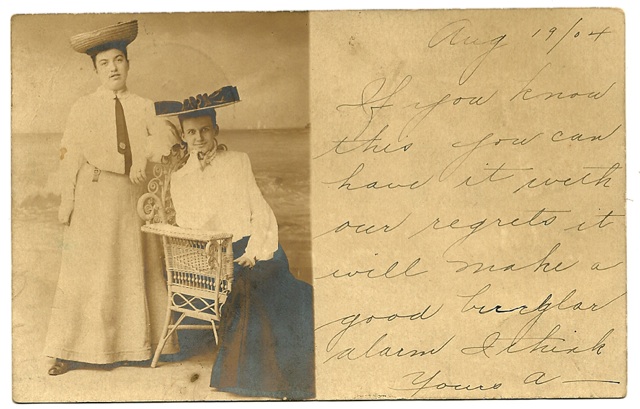 Aug 19/04
If you know
this you can
have it with
our regrets it
will make a
good burglar
alarm I think
Yours A —